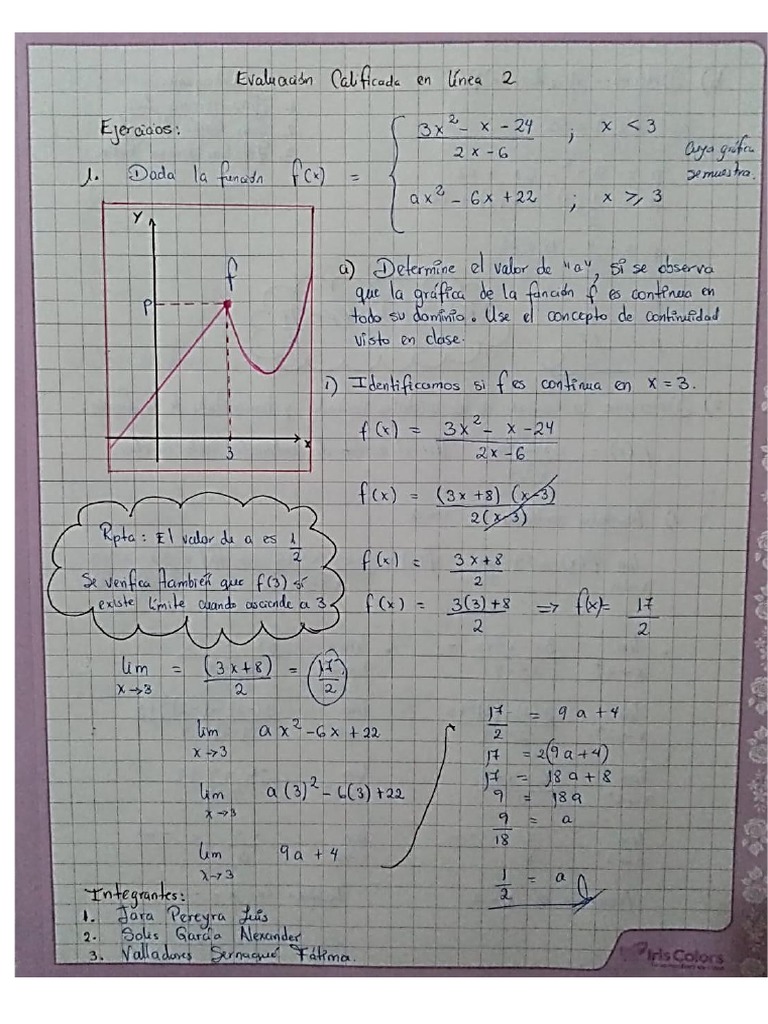 Evaluación Calificada en línea 2
Ejercicios:
1. Dada la función f(x) = { (3x² - x - 24)/(2x - 6) ; x < 3
ax² - 6x + 22 ; x ≥ 3
Cuya gráfica
se muestra.
Y
f
P
3
x
a) Determine el valor de "a", si se observa
que la gráfica de la función f es continua en
todo su dominio. Use el concepto de continuidad
visto en clase.
i) Identificamos si f es continua en x = 3.
f(x) = (3x² - x - 24)/(2x - 6)
f(x) = (3x + 8)(x - 3)/2(x - 3)
f(x) = (3x + 8)/2
f(x) = (3(3) + 8)/2 ⇒ f(x) = 17/2
Rpta: El valor de a es 1/2
Se verifica también que f(3) si
existe límite cuando asciende a 3
lim x→3 = (3x + 8)/2 = 17/2
lim x→3 ax² - 6x + 22
lim x→3 a(3)² - 6(3) + 22
lim x→3 9a + 4
17/2 = 9a + 4
17 = 2(9a + 4)
17 = 18a + 8
9 = 18a
9/18 = a
1/2 = a
Integrantes:
1. Jara Pereyra Luis
2. Solis García Alexander
3. Valladares Sernaqué Fátima.
Iris Colors